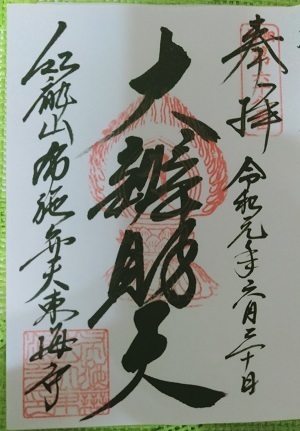 奉拝
令和元年六月二十日
大辨財天
紅龍山布施弁天東海寺